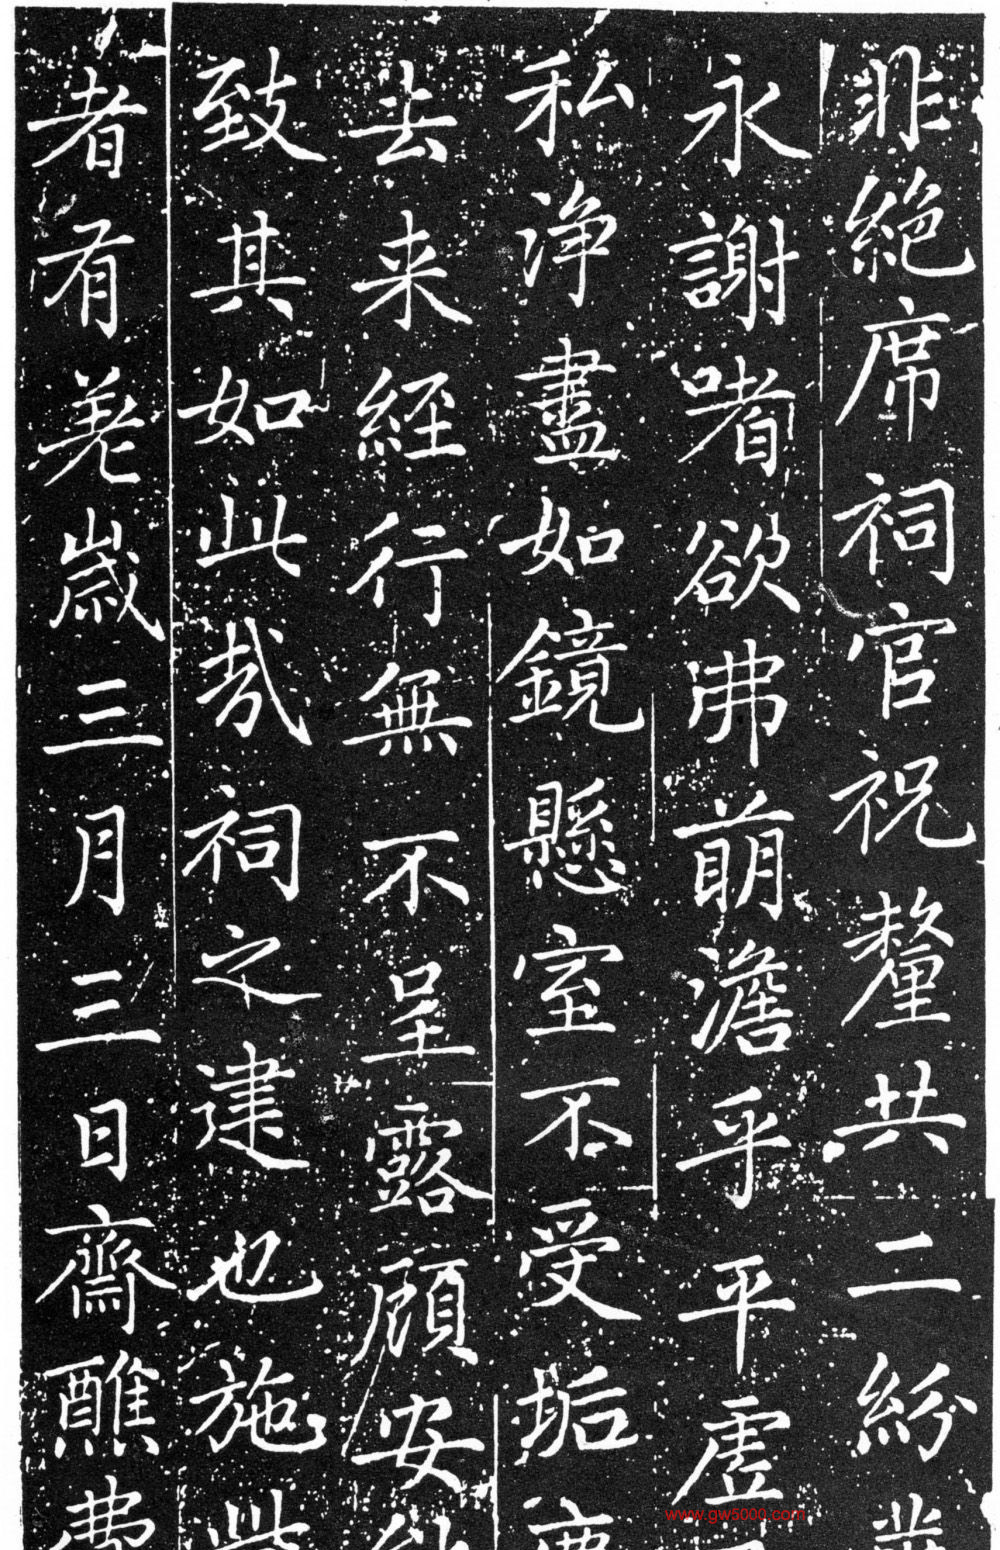 非絕席祠官祝釐共二紛
永謝耆欲弗萌澹乎平虛
私淨盡如鏡懸室不受垢
去来經行無不呈露顧安
致其如此哉祠之建也施
者有差歲三月三日齋醮費
www.gw5000.com